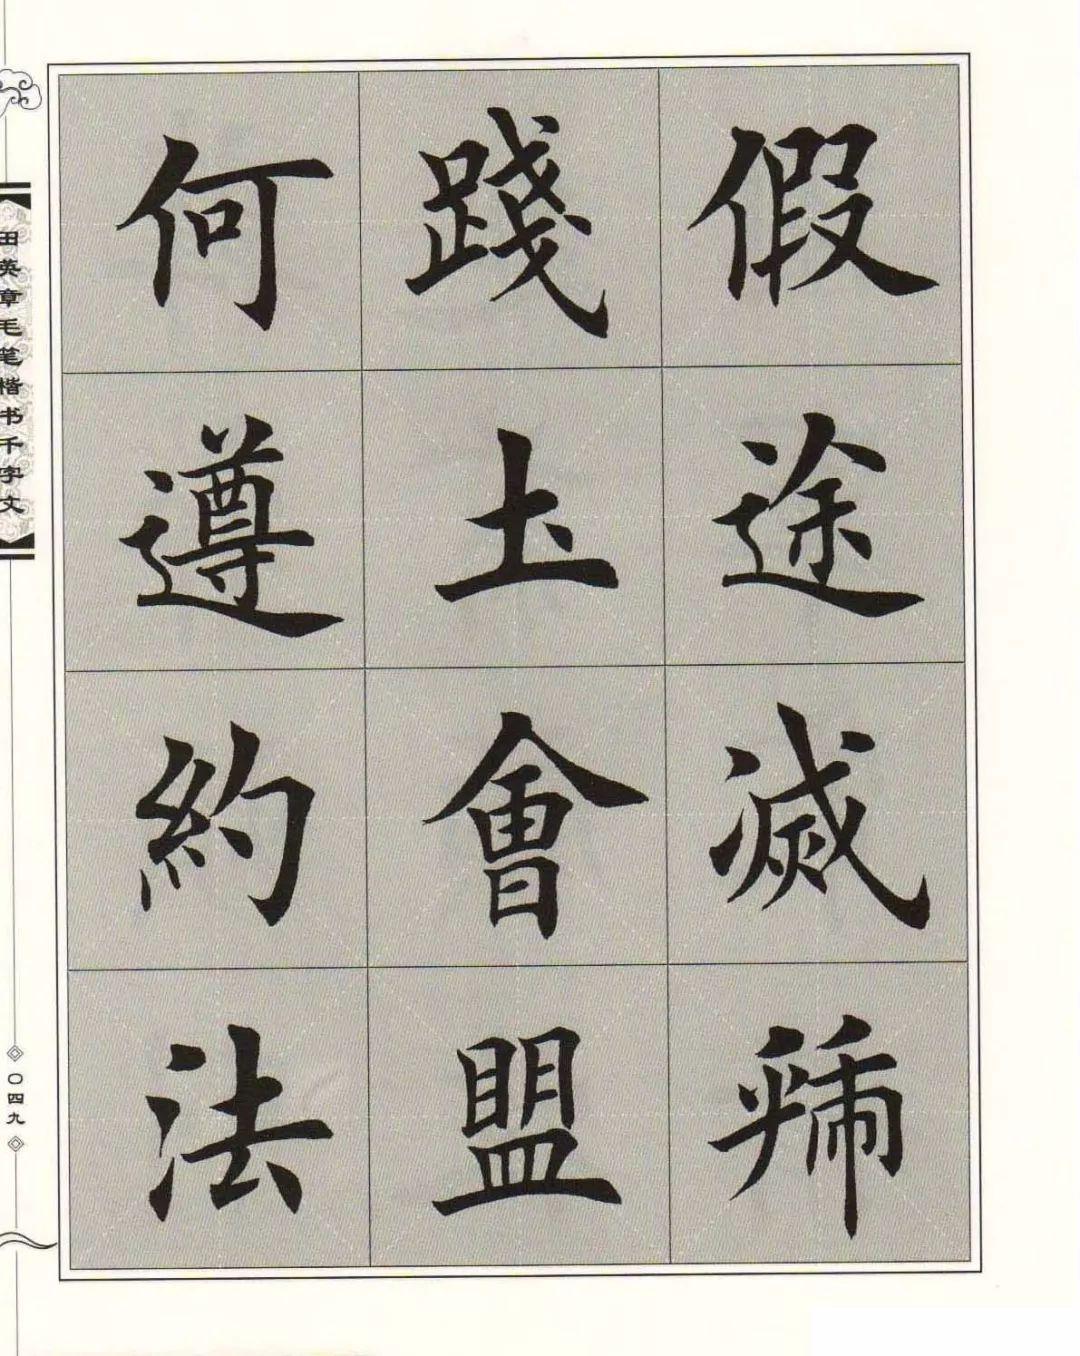 假途滅虢
踐土會盟
何遵約法
田英章毛笔楷书千字文
〇四九